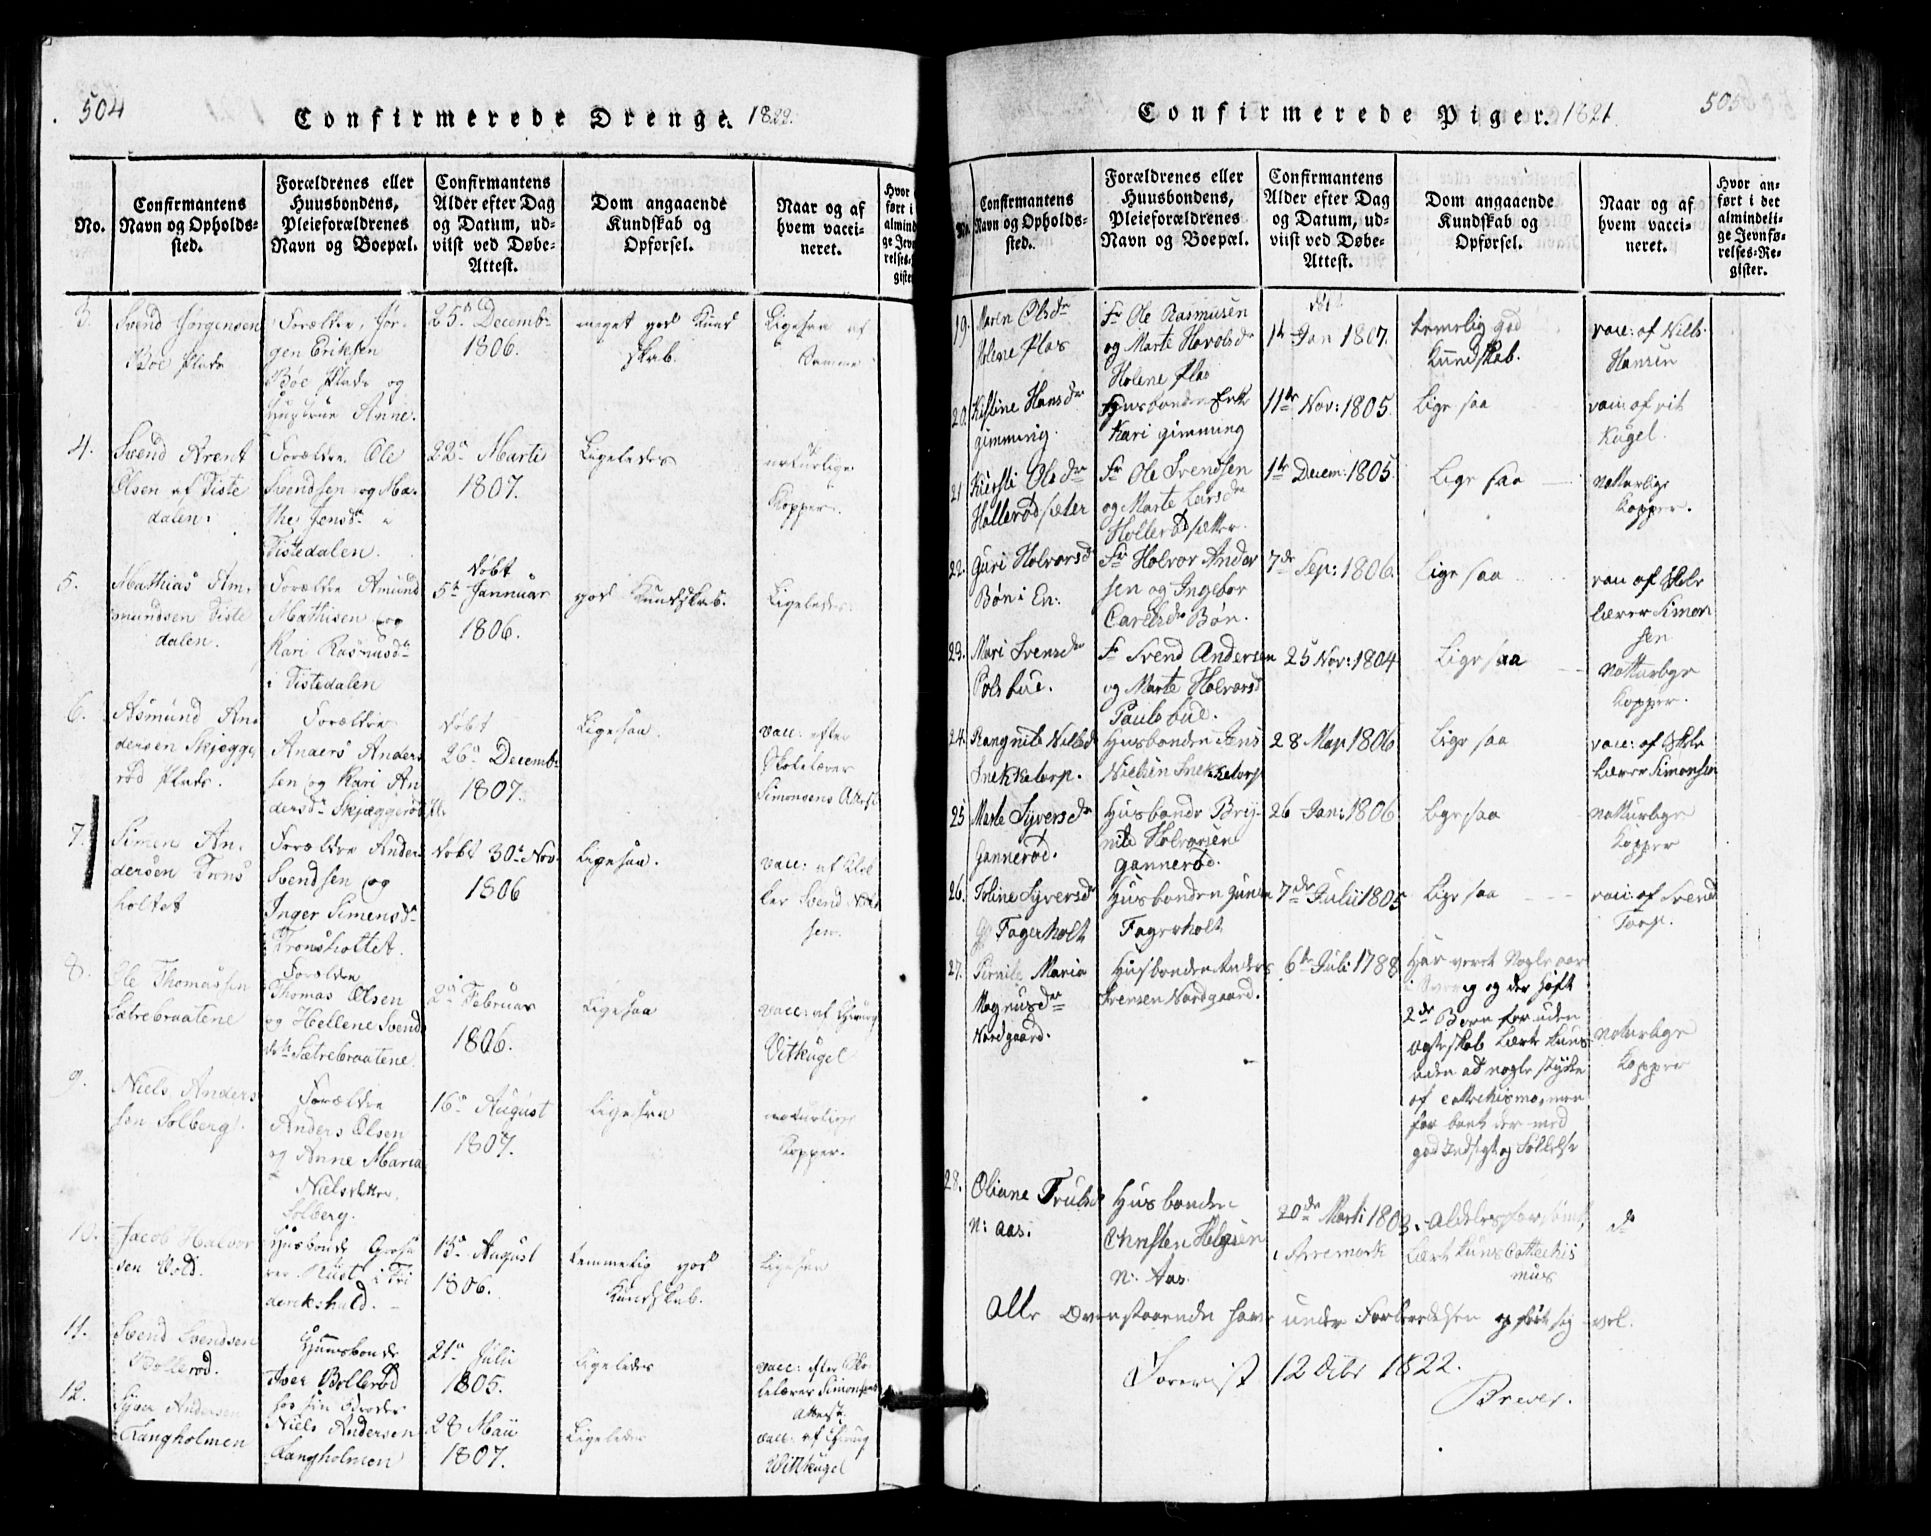 504
Confirmerede Drenge. 1822.
No.
Confirmantens
Navn og Opholds-
sted.
Forældrenes eller
Huusbondens,
Pleieforældrenes
Navn og Boepæl.
Confirmantens
Alder efter Dag
og Datum, ud-
viist ved Døbe-
Attest.
Dom angaaende
Kundskab og
Opførsel.
Naar og af
hvem vacci-
neret.
3.
Svend Jørgensen
Böe Plads
Forældre, Jør-
gen Eriksen
Böe Plads og
Anne.
25de Decembr
1806.
meget god Kund
skab.
Ligesaa af
Samme
4.
Svend Arent
Olsen af Tiste
dalen.
Forældre Ole
Svendsen og Ma-
the Jensdr i
Tistedalen.
22de Marti
1807.
Ligeledes
naturlige
Kopper.
5.
Mathias Am-
mundsen Tiste
dalen.
Forældre Amund
Mathisen og
Kari Rasmusdr
i Tistedalen
döbt
5te Januar
1806.
god Kundskab.
Ligeledes.
6.
Asmund An-
dersen Skjægge
röd Plads.
Forældre
Anders Anders
sen og Kari An
dersdr Skjæggeröd Pl.
döbt
26de Decembr
1807.
Ligesaa.
vacc: efter
Skolelærer
Simonsens Attest
7.
Simen An-
dersen Trons
holtet
Forældre Anders
Svendsen og
Inger Simensdr
Tronsholtet.
döbt 30te Nov.
1806
Ligesaa.
vacc: af Klok
ker Svend Niel
sen.
8.
Ole Thomassen
Sætrebraatene
Forældre
Thomas Olsen
og Hellene Svends
dtr Sætrebraatene
2de Februar
1806.
Ligesaa
vacc: af Chirurg
Vitkugel
9.
Niels Anders
sen Solberg.
Forældre
Anders Olsen
og Anne Maria
Nielsdatter
Solberg.
16de August
1807.
Ligesaa
naturlige
Kopper.
10.
Jacob Halvor
sen Vold.
Huusbonde
i Fri
derikshald.
13de August
1806.
temmelig god
Kundskab.
Ligesaa
11.
Svend Svendsen
Bolleröd.
Huusbonde
Iver Bolleröd
hos sin Broder
21de Julii
1805.
Ligeledes
vacc: efter Sko
lelærer Simonsens
Attest
12.
Syver Andersen
Langholmen
Niels Andersen
Langholmen
28 Maii
1807.
Ligeledes
vacc: af Chirurg
Vittkugel
505
Confirmerede Piger. 1821.
No.
Confirmantens
Navn og Opholds-
sted.
Forældrenes eller
Huusbondens,
Pleieforældrenes
Navn og Boepæl.
Confirmantens
Alder efter Dag
og Datum, ud-
viist ved Døbe-
Attest.
Dom angaaende
Kundskab og
Opførsel.
Naar og af
hvem vacci-
neret.
Hvor an-
ført i det
almindeli-
ge Jevnfø-
relses-Re-
gister.
19.
Maren Olsdr
Holene Plas
Fr Ole Rasmusen
og Marte Havolsdr
Holene Plas
1te Jan 1807.
temelig god
Kundskab.
vacc: af Nills
Hansen
20.
Kistine Hansdr
gimming.
Husbonden Erik
Kari gimming
11te Nov: 1805.
Lige saa
vacc: af vit
Kugel.
21
Kiersti Olsdr
Hollerödsæter
Fr Ole Svendsen
og Marte Larsdr
Hollerödsætter.
1te Decem: 1805.
Lige saa
Natturlige
Kopper.
22.
Guri Holvorsdr
Bön i En:
Fr Holvor Ander
sen og Ingebor
Carlsdr Bön.
7de Sep: 1806.
Lige saa
vac af Skole
lærer Simon
sen
23.
Mari Svensdr
Pols bue.
Fr Svend Andersen
og Marte Holvorsd
Pauls bue.
25 Nov: 1804
Lige saa
Natturlige
Kopper.
24.
Rangnile Nilsdr
Snekketorp.
Husbonden Jens
Nielsen Snekketorp
28 May 1806
Lige saa
vacc: af Skole
Lærer Simonsen
25
Marte Syversdr
Gannerød.
Husbonde Brij-
nild Holvorsen
gannerød.
26 Jan: 1806
Lige saa
Natturlige
Kopper
26.
Toline Syversdr
Fagerholt
Husbonden Gunder
Fagerholt
7de Julii 1805
Lige saa
vacc: af Svend
Torp.
27.
Pernile Maria
Magnusdr
Nordgaard.
Husbonden Anders
Svensen Nordgaard.
6te Juli 1788
Har veret Nogle aar
i Sverrig og der haft
2de Born for uden
Ægteskab Lært kuns
uden ad nogle stykker
af Cattekismo, men
for bant der med
god Indsigt og Følelse
Naturlige
Kopper
28.
Oliane Truls
n: aas.
Husbonden
Christen Helgesen
N: Aas
20de Marti 1803.
i Arremark
Aldeles forsømt,
Lært kuns Cattechis
mus
do
Alle Ovenstaaende have under Forberedelsen opført sig vel.
12 Octbr 1822.